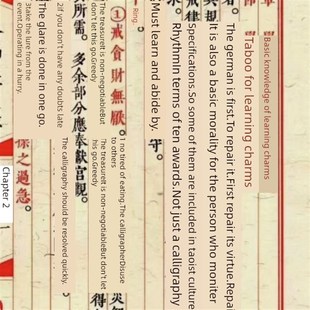 Basic knowledge of learning charms
Taboo for learning charms
The german is first.To repair it.First repair its virtue.Repai
It is also a basic morality for the person who moniter
Specifications.So some of them are included in taoist culture
Rhythmin terms of ten awards.Not just a calligraphy
Must learn and abide by.
守。
Ring
①戒貪財無厭
I no tired of eating.The calligrapherDisuse
to others
The treasureIt is non-negotiableBut don't let
his goGreedy
The treasureIt is non-negotiableBut
don't let this go.Greedy
所需，多餘部分應奉獻宫觀。
The calligraphy should be resolved quickly.
2if you don't have any doubts late
The glare is done in one go.
3take the lure from the
event.Operating in a hurry.
徐之過急。
Chapter 2